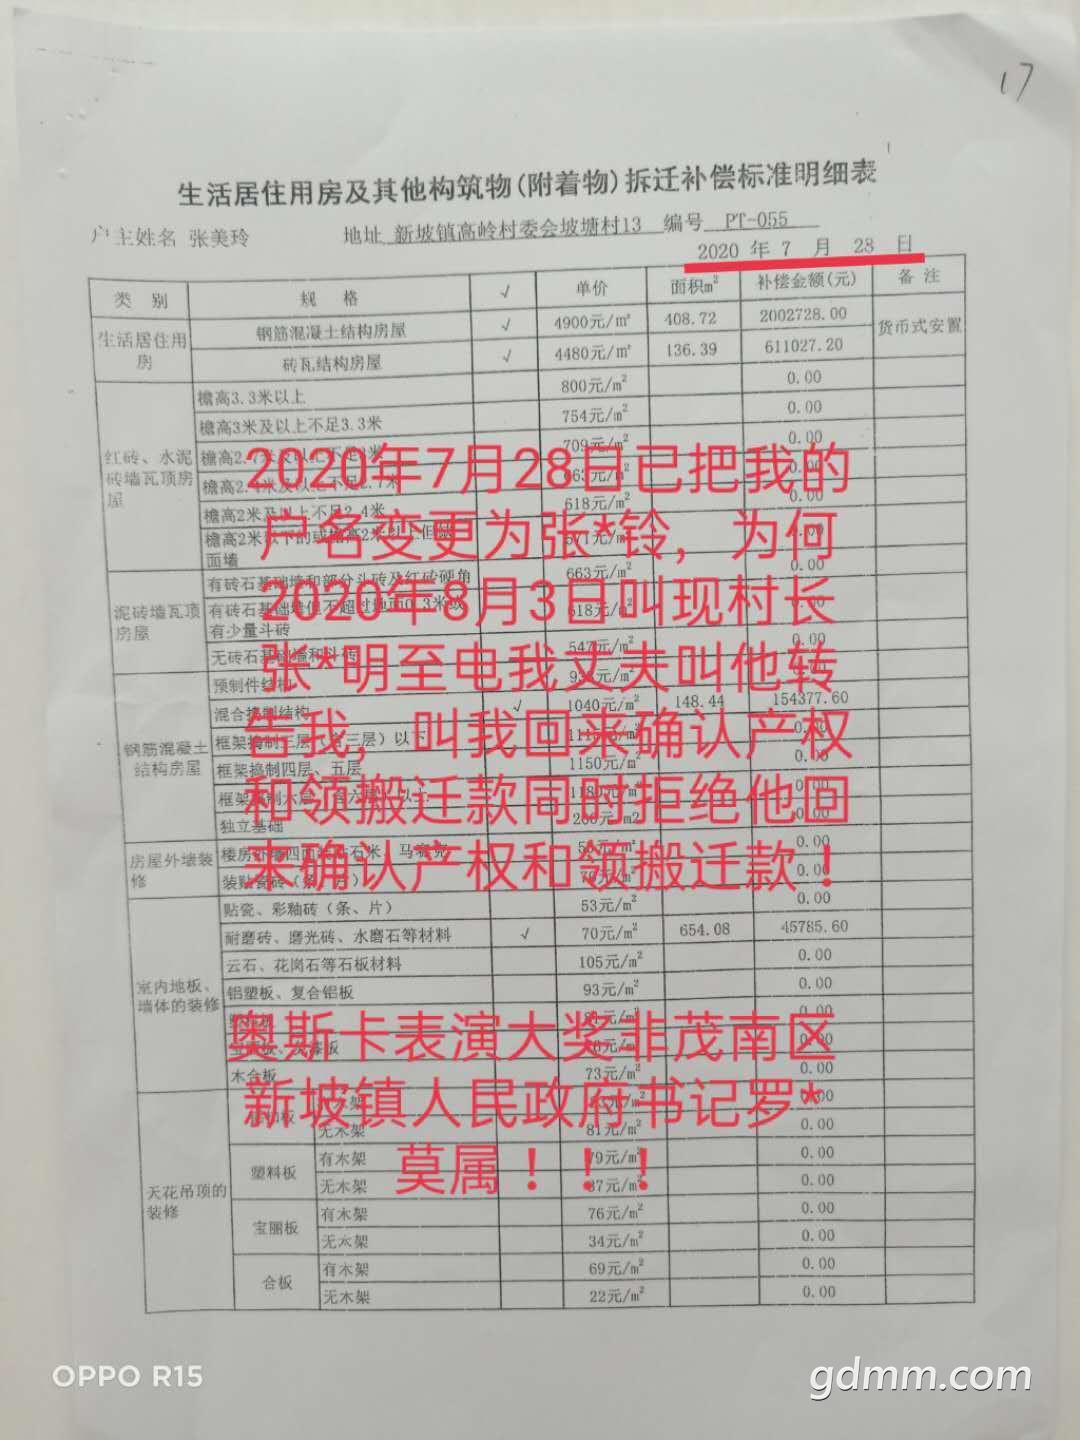 17
生活居住用房及其他构筑物(附着物)拆迁补偿标准明细表
户主姓名 张美玲 地址 新坡镇高岭村委会坡塘村13 编号 PT-055
2020 年 7 月 28 日
类 别 规 格 √ 单价 面积m² 补偿金额(元) 备 注
生活居住用房 钢筋混凝土结构房屋 √ 4900元/m² 408.72 2002728.00 货币式安置
砖瓦结构房屋 √ 4480元/m² 136.39 611027.20
红砖、水泥砖墙瓦顶房屋 檐高3.3米以上 800元/m² 0.00
檐高3米及以上不足3.3米 754元/m² 0.00
709元/m² 0.00
2020年7月28日已把我的
618元/m²
户名变更为张*铃，为何
面墙 0.00
663元/m²
泥砖墙瓦顶房屋
2020年8月3日叫现村长
有少量斗砖
547元/m² 0.00
张*明至电我丈夫叫他转
预制件结构
钢筋混凝土结构房屋 混合捣制结构 √ 1040元/m² 148.44 154377.60
告我，叫我回来确认产权
框架捣制四层、五层 1150元/m² 0.00
和领搬迁款同时拒绝他回
独立基础
房屋外墙装修 0.00
来确认产权和领搬迁款！
室内地板、墙体的装修 贴瓷、彩釉砖（条、片） 53元/m² 0.00
耐磨砖、磨光砖、水磨石等材料 √ 70元/m² 654.08 45785.60
云石、花岗石等石板材料 105元/m² 0.00
铝塑板、复合铝板 93元/m² 0.00
奥斯卡表演大奖非茂南区
木合板 73元/m² 0.00
新坡镇人民政府书记罗*
无木架 81元/m² 0.00
天花吊顶的装修 塑料板 有木架 79元/m² 0.00
莫属！！！
无木架 0.00
宝丽板 有木架 76元/m² 0.00
无木架 34元/m² 0.00
合板 有木架 69元/m² 0.00
无木架 22元/m² 0.00
OPPO R15
gdmm.com